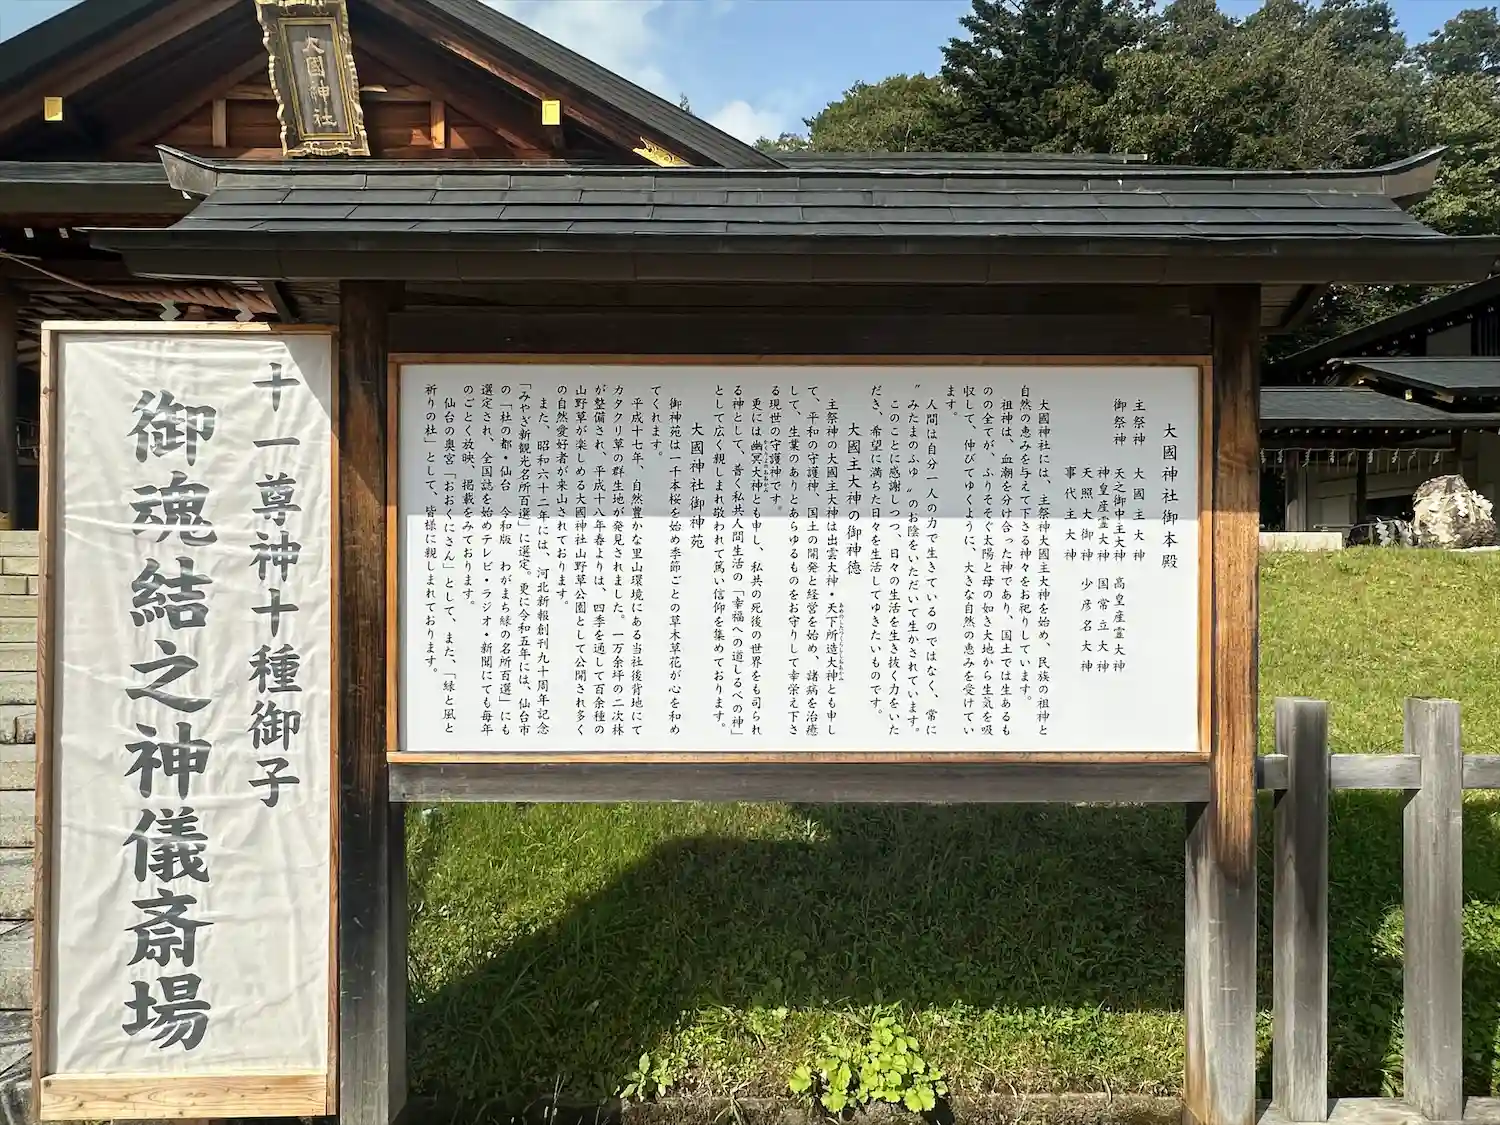 大國神社
十一尊神十種御子
御魂結之神儀斎場
大國神社御本殿
主祭神 大國主大神
御祭神 天之御中主大神 高皇産霊大神
神皇産霊大神 国常立大神
天照大御神 少彦名大神
事代主大神
大國神社には、主祭神大國主大神を始め、民族の祖神と
自然の恵みを与えて下さる神々をお祀りしています。
祖神は、血潮を分け合った神であり、国土では生あるも
のの全てが、ふりそそぐ太陽と母の如き大地から生気を吸
収して、伸びてゆくように、大きな自然の恵みを受けてい
ます。
人間は自分一人の力で生きているのではなく、常に
〝みたまのふゆ〟のお陰をいただいて生かされています。
このことに感謝しつつ、日々の生活を生き抜く力をいた
だき、希望に満ちた日々を生活してゆきたいものです。
大國主大神の御神徳
主祭神の大國主大神は出雲大神・天下所造大神とも申し
て、平和の守護神、国土の開発と経営を始め、諸病を治癒
して、生業のありとあらゆるものをお守りして幸栄え下さ
る現世の守護神です。
更には幽冥大神とも申し、私共の死後の世界をも司られ
る神として、普く私共人間生活の「幸福への道しるべの神」
として広く親しまれ敬われて篤い信仰を集めております。
大國神社御神苑
御神苑は一千本桜を始め季節ごとの草木草花が心を和め
てくれます。
平成十七年、自然豊かな里山環境にある当社後背地にて
カタクリ草の群生地が発見されました。一万余坪の二次林
が整備され、平成十八年春よりは、四季を通して百余種の
山野草が楽しめる大國神社山野草公園として公開され多く
の自然愛好者が来山されております。
また、昭和六十二年には、河北新報創刊九十周年記念
「みやぎ新観光名所百選」に選定。更に令和五年には、仙台市
の「杜の都・仙台 令和版 わがまち緑の名所百選」にも
選定され、全国誌を始めテレビ・ラジオ・新聞にても毎年
のごとく放映、掲載をみております。
仙台の奥宮「おおくにさん」として、また、「緑と風と
祈りの杜」として、皆様に親しまれております。